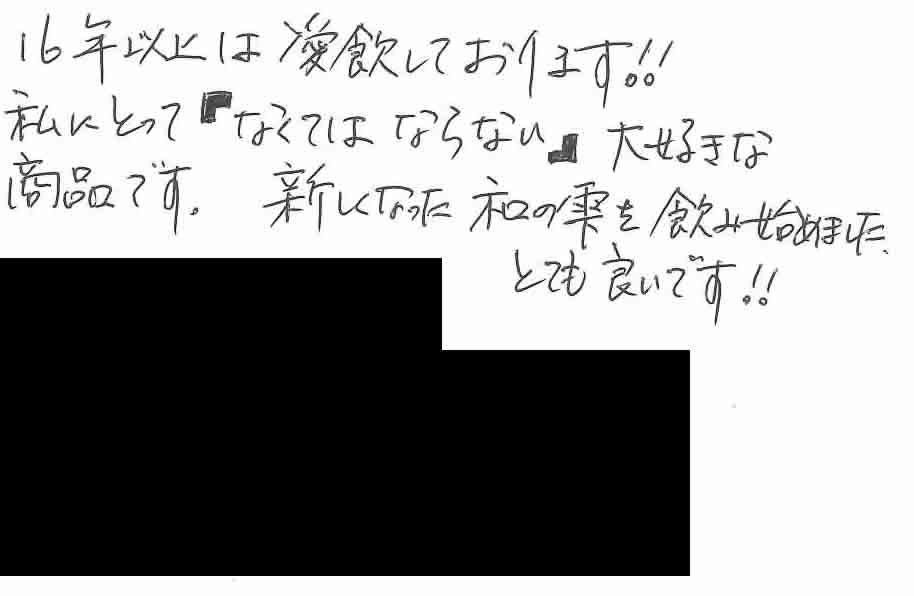 16年以上は愛飲しております!!
私にとって『なくてはならない』大好きな
商品です。 新しくなった和の雫を飲み始めました、
とても良いです!!